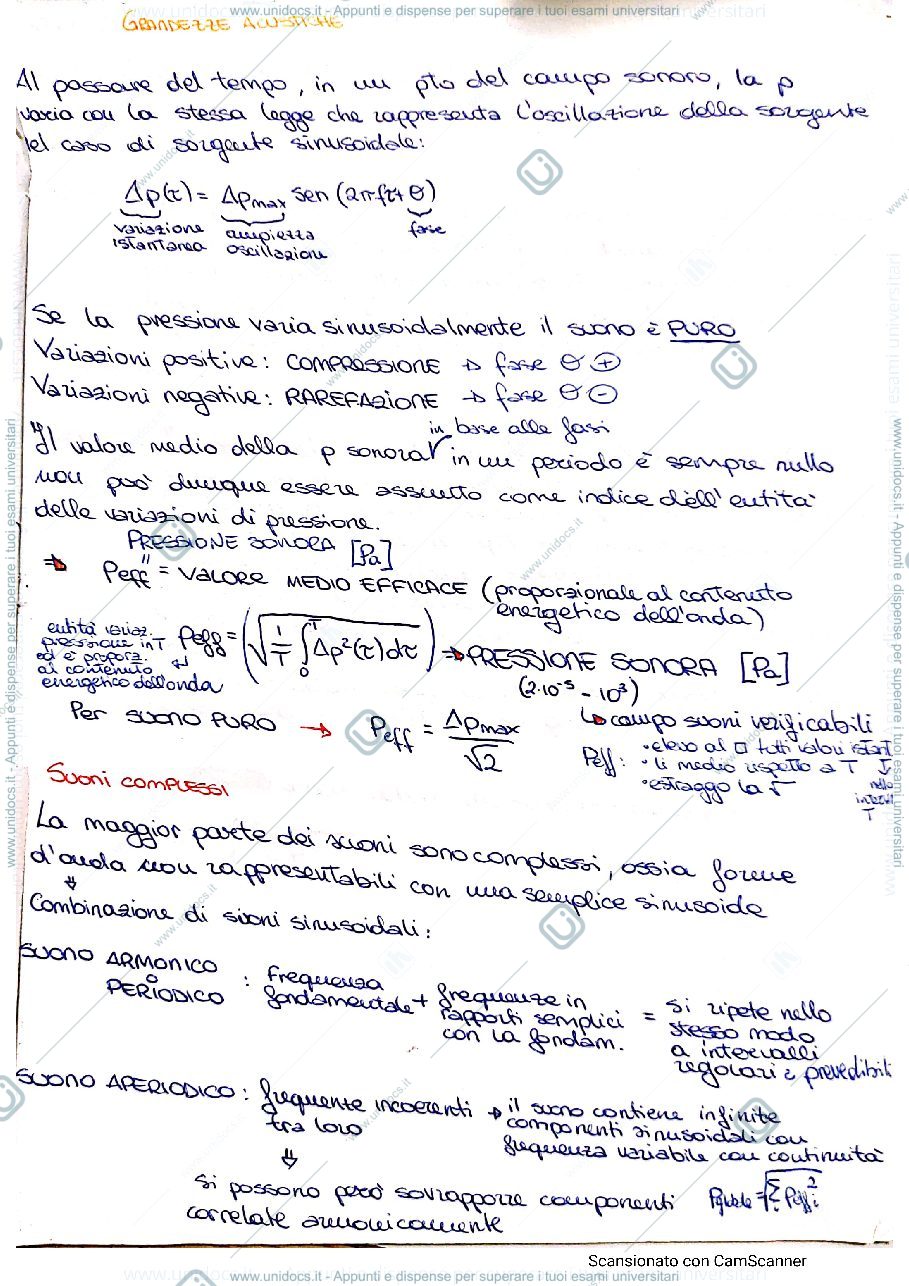 www.unidocs.it - Appunti e dispense per superare i tuoi esami universitari
GRANDEZZE ACUSTICHE
Al passare del tempo, in un pto del campo sonoro, la p
varia con la stessa legge che rappresenta l'oscillazione della sorgente
Nel caso di sorgente sinusoidale:
Δp(τ) = Δpmax sen (2πfτ + θ)
variazione istantanea
ampiezza oscillazioni
fase
Se la pressione varia sinusoidalmente il suono è PURO
Variazioni positive: COMPRESSIONE → fase θ ⊕
Variazioni negative: RAREFAZIONE → fase θ ⊖
in base alle fasi
Il valore medio della p sonora in un periodo è sempre nullo
non può dunque essere assunto come indice dell'entità
delle variazioni di pressione.
PRESSIONE SONORA [Pa]
⇒ Peff = VALORE MEDIO EFFICACE (proporzionale al contenuto
energetico dell'onda)
entità variaz.
pressione in T
ed è proporz.
al contenuto
energetico dell'onda
Peff = (√(1/T ∫₀ᵀ Δp²(τ)dτ)) → PRESSIONE SONORA [Pa]
(2·10⁻⁵ - 10³)
↳ campo suoni verificabili
Per SUONO PURO → Peff = Δpmax/√2
Peff: • elevo al □ tutti valori istant
↓ nello interval T
• li medio rispetto a T
• estraggo la √
SUONI COMPLESSI
La maggior parte dei suoni sono complessi, ossia forme
d'onda non rappresentabili con una semplice sinusoide
⇓
Combinazione di suoni sinusoidali:
SUONO ARMONICO
o
PERIODICO
: frequenza
fondamentale + frequenze in
rapporti semplici
con la fondam.
= si ripete nello
stesso modo
a intervalli
regolari e prevedibili
SUONO APERIODICO: frequente incoerenti
tra loro
→ il suono contiene infinite
componenti sinusoidali con
frequenza variabile con continuità
⇓
si possono però sovrapporre componenti
correlate armonicamente
= √(Σᵢ Peff ᵢ²)
Scansionato con CamScanner
www.unidocs.it - Appunti e dispense per superare i tuoi esami universitari